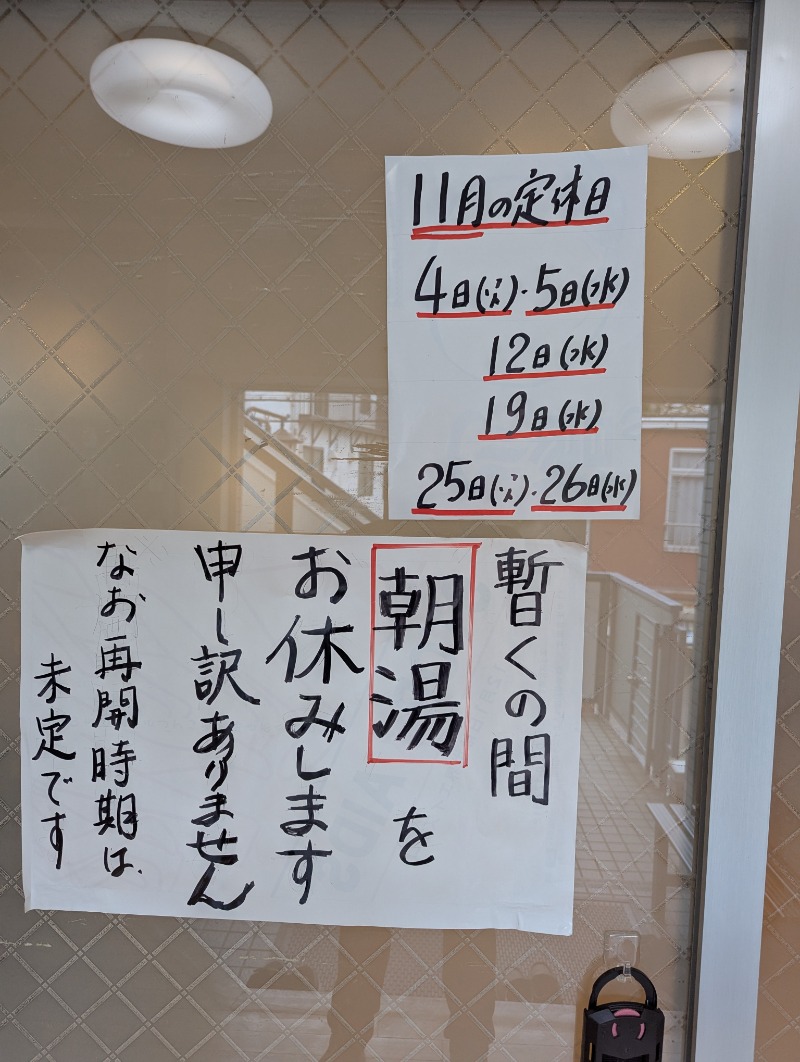 11月の定休日
4日(火)・5日(水)
12日(水)
19日(水)
25日(火)・26日(水)
暫くの間
朝湯を
お休みします
申し訳ありません
なお再開時期は、
未定です